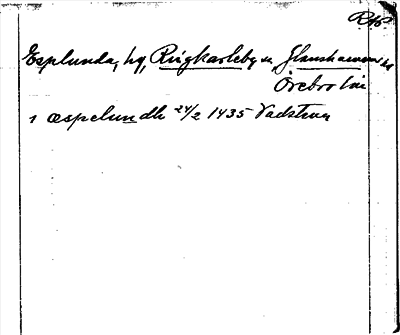 RAp
Esplunda, hg, Ringkarleby sn, Glanshammars hd
Örebro län
i æspelundh 24/2 1435 Vadstena